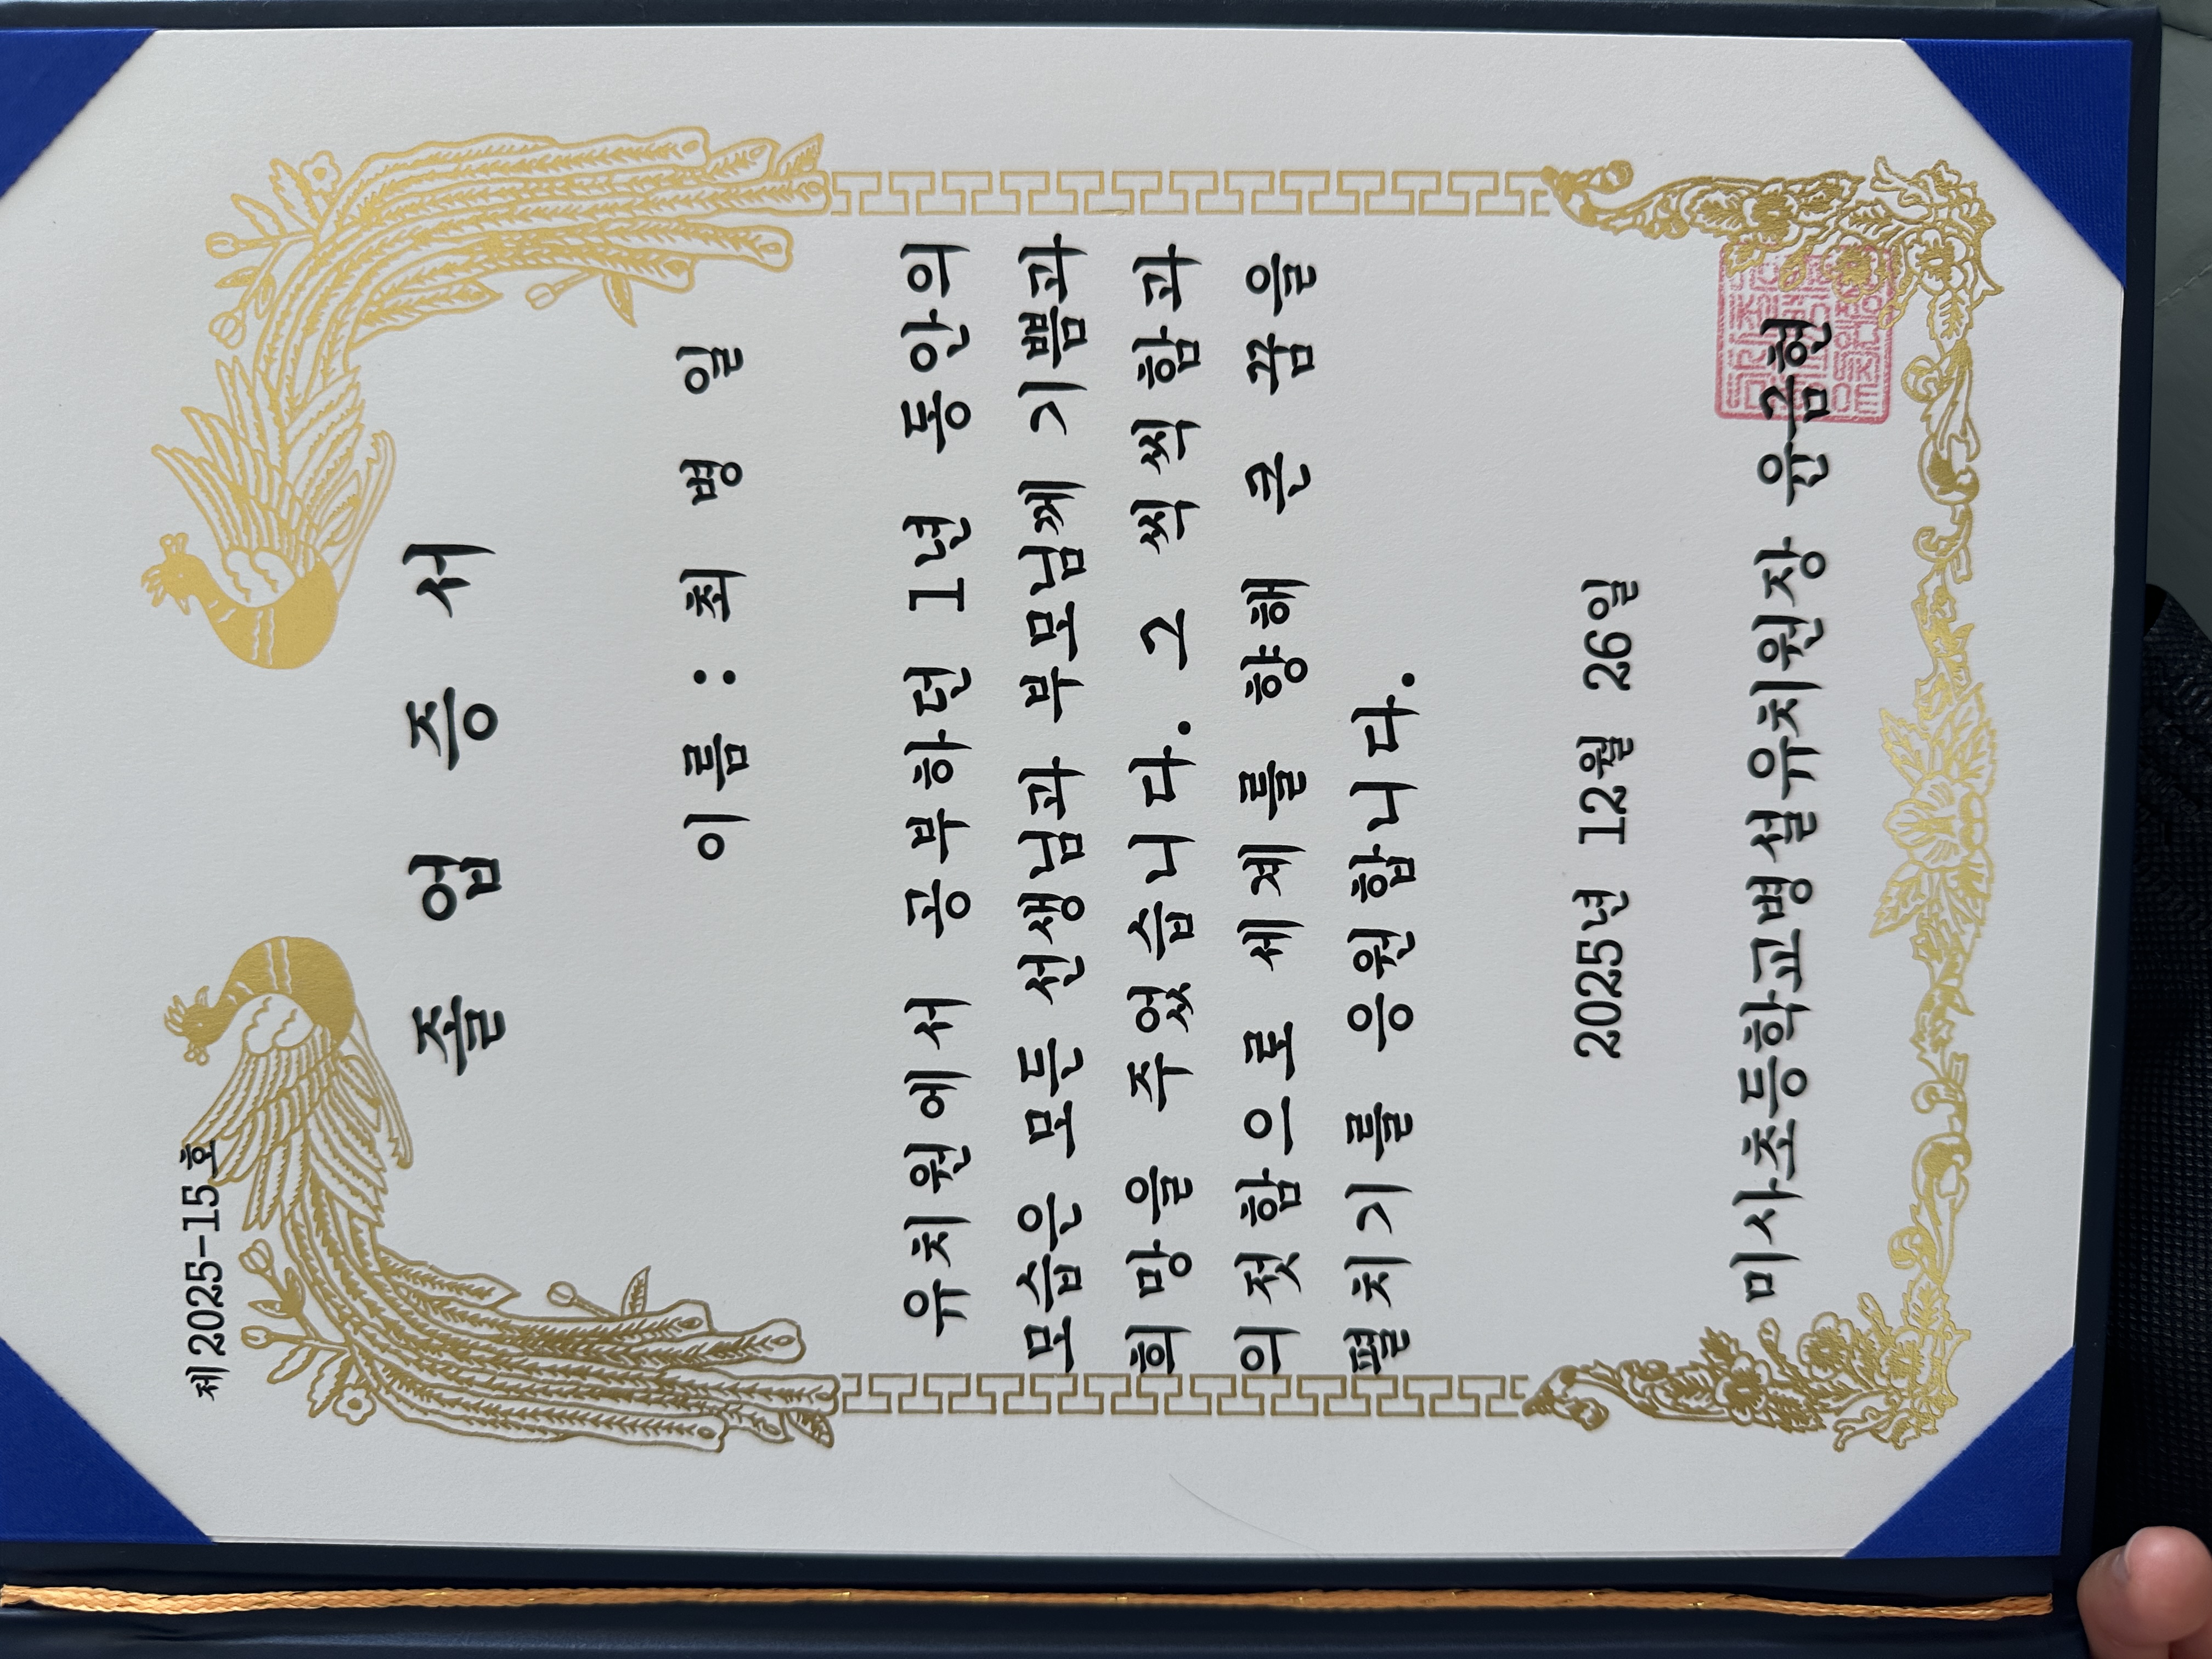 제2025-15호
졸 업 증 서
이름 : 최 병 일
유치원에서 공부하던 1년 동안의
모습은 모든 선생님과 부모님께 기쁨과
희망을 주었습니다. 그 씩씩함과
의젓함으로 세계를 향해 큰 꿈을
펼치기를 응원합니다.
2025년 12월 26일
미사초등학교병설유치원장 윤금현